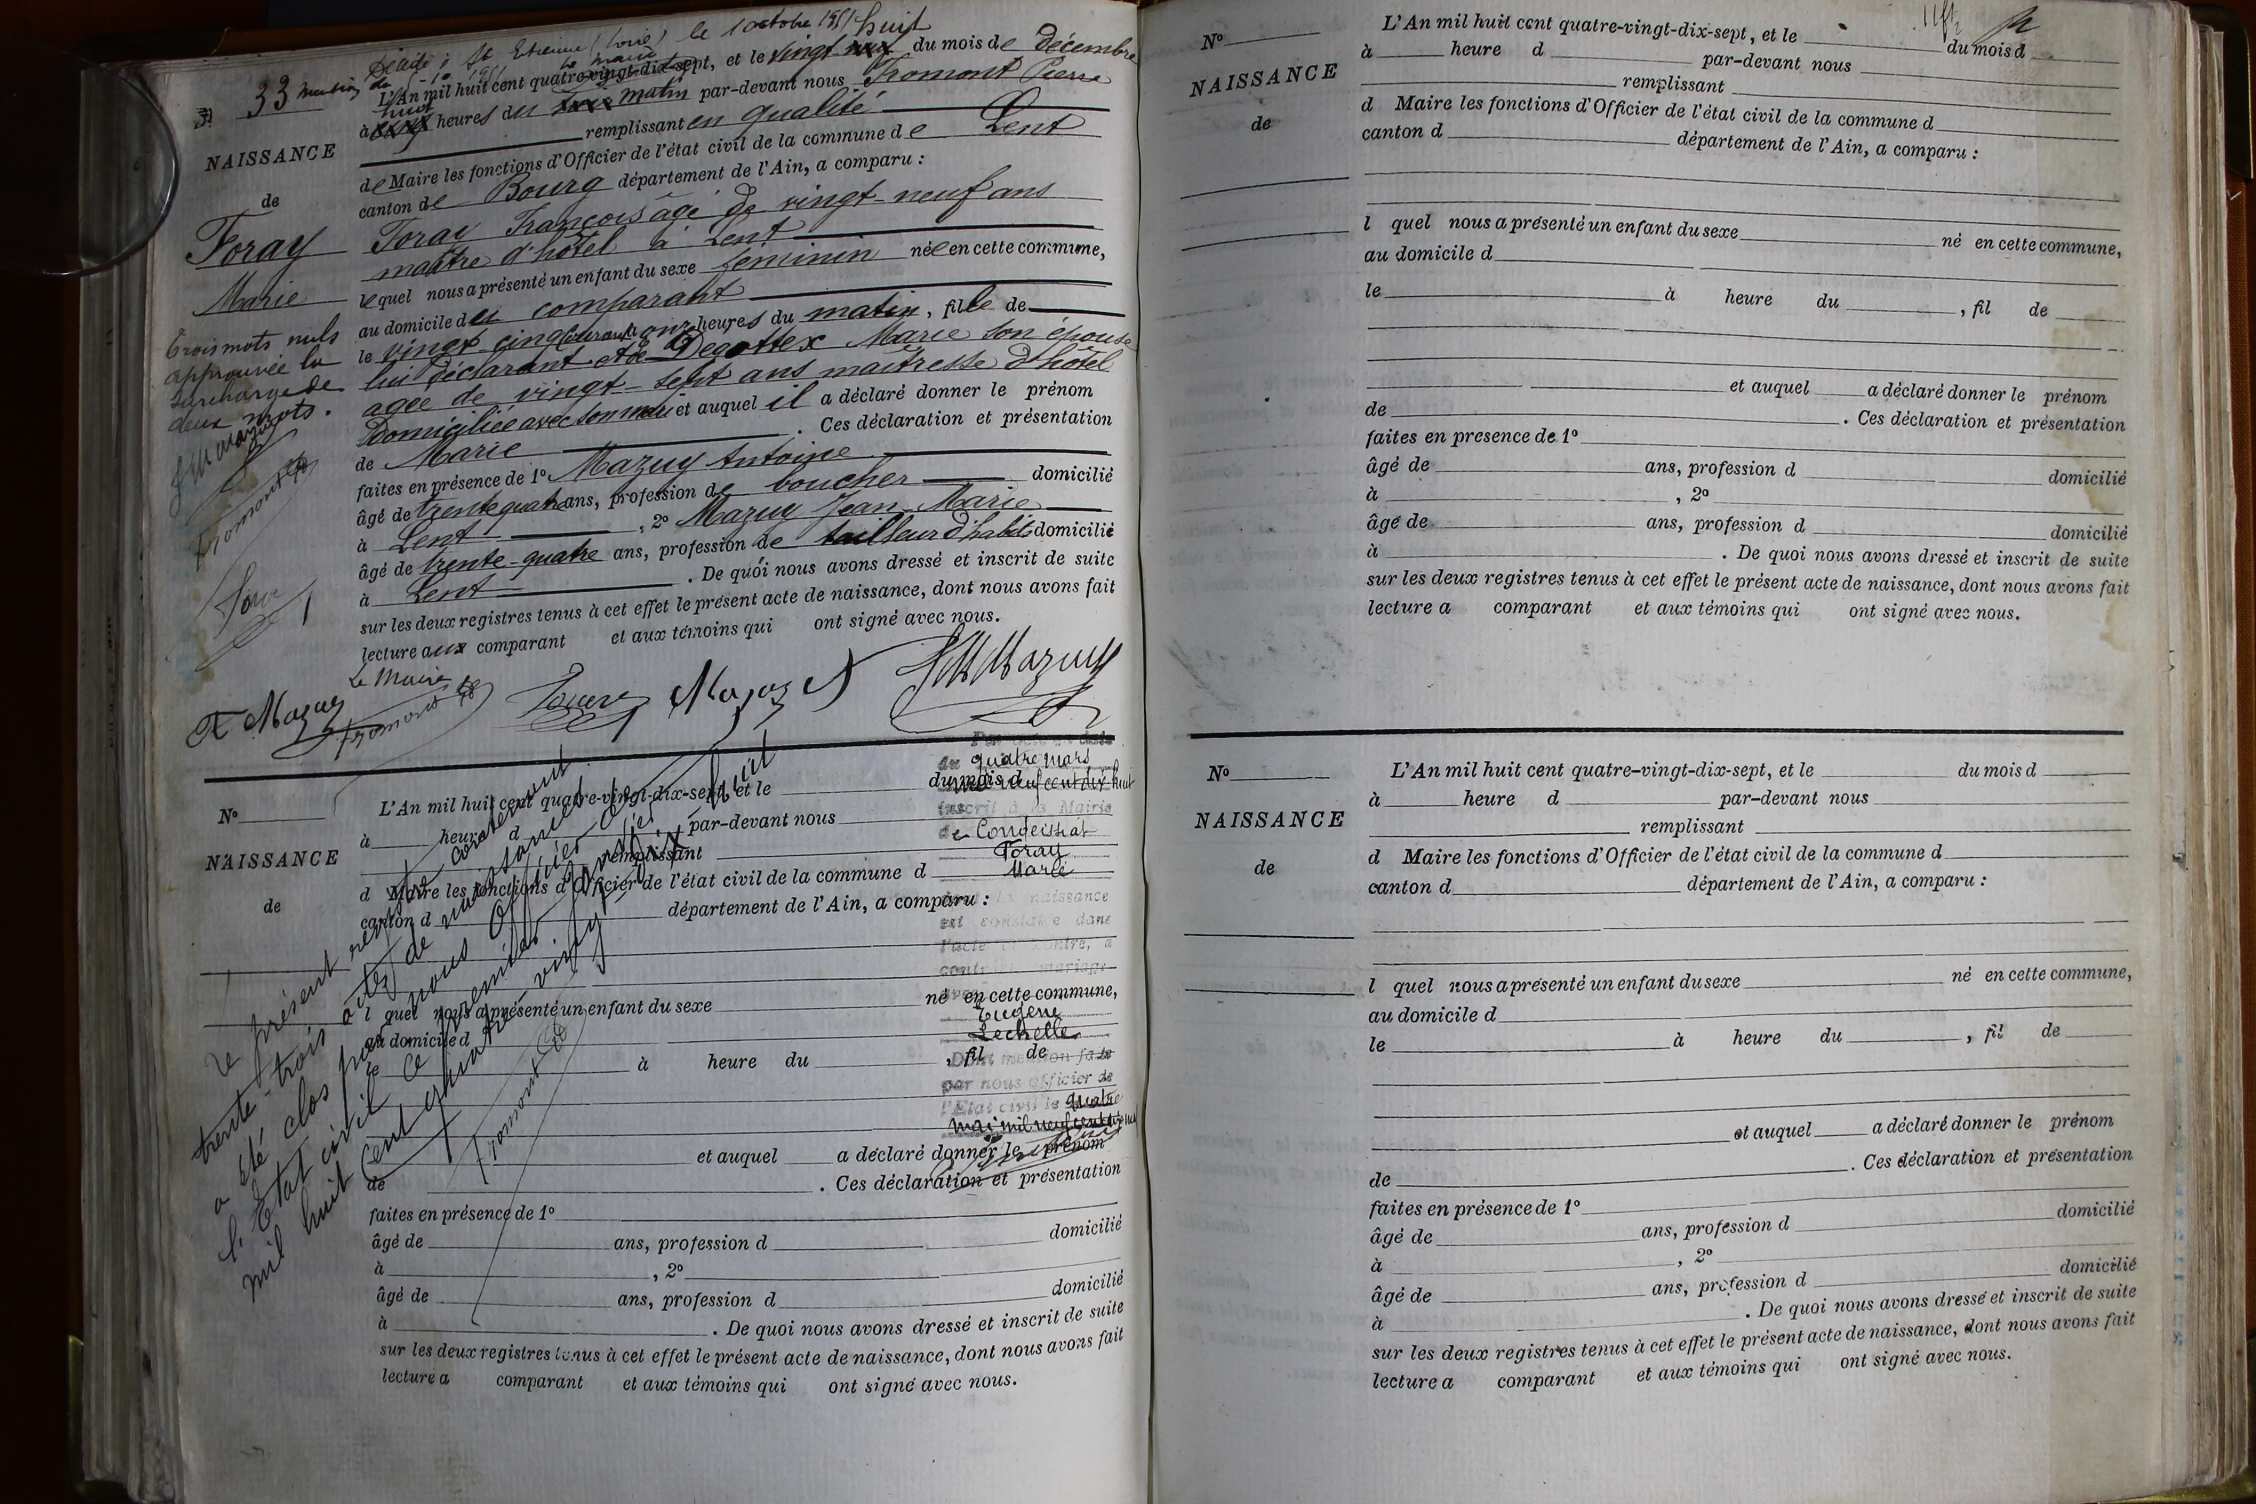 Décédé à St Etienne (Loire) le 1 octobre 1951
N° 33
L'An mil huit cent quatre-vingt-dix-sept, et le vingt huit du mois de décembre
à huit heures du matin par-devant nous Fromont Pierre
remplissant en qualité
de Maire les fonctions d'Officier de l'état civil de la commune de Lent
canton de Bourg département de l'Ain, a comparu :
NAISSANCE
de
Foray
Marie
Foray François âgé de vingt-neuf ans
maître d'hôtel à Lent
lequel nous a présenté un enfant du sexe féminin née en cette commune,
au domicile du comparant
le vingt cinq courant à onze heures du matin, fille de
lui déclarant et de Degottex Marie son épouse
agée de vingt-sept ans maîtresse d'hôtel
Domiciliée avec son mari et auquel il a déclaré donner le prénom
de Marie . Ces déclaration et présentation
faites en présence de 1° Mazuy Antoine
âgé de trente quatre ans, profession de boucher domicilié
à Lent , 2° Mazuy Jean Marie
âgé de trente-quatre ans, profession de tailleur d'habits domicilié
à Lent . De quoi nous avons dressé et inscrit de suite
sur les deux registres tenus à cet effet le présent acte de naissance, dont nous avons fait
lecture aux comparant et aux témoins qui ont signé avec nous.
Trois mots nuls
approuvée la
surcharge de
deux mots.
Fromont
Le Maire
Mazuy
Fromont
Foray
Mazuy
JM Mazuy
N°
NAISSANCE
de
L'An mil huit cent quatre-vingt-dix-sept, et le du mois d
à heure d par-devant nous
remplissant
d Maire les fonctions d'Officier de l'état civil de la commune d
canton d département de l'Ain, a comparu :
l quel nous a présenté un enfant du sexe né en cette commune,
au domicile d
le à heure du , fil de
et auquel a déclaré donner le prénom
de . Ces déclaration et présentation
faites en présence de 1°
âgé de ans, profession d domicilié
à , 2°
âgé de ans, profession d domicilié
à . De quoi nous avons dressé et inscrit de suite
sur les deux registres tenus à cet effet le présent acte de naissance, dont nous avons fait
lecture a comparant et aux témoins qui ont signé avec nous.
Le présent registre contenant
trente-trois actes de naissances
a été clos par nous Officier de
l'Etat civil ce premier janvier
mil huit cent quatre-vingt dix huit
Fromont
Par acte en date
du quatre mars
mil neuf cent dix huit
inscrit à la Mairie
de Condeissiat
Foray
Marie
dont la naissance
est constatée dans
l'acte ci-contre, a
contracté mariage
avec
Eugène
Lechelle
Dont mention faite
par nous officier de
l'Etat civil le quatre
mai mil neuf cent
N°
NAISSANCE
de
L'An mil huit cent quatre-vingt-dix-sept, et le du mois d
à heure d par-devant nous
remplissant
d Maire les fonctions d'Officier de l'état civil de la commune d
canton d département de l'Ain, a comparu :
l quel nous a présenté un enfant du sexe né en cette commune,
au domicile d
le à heure du , fil de
et auquel a déclaré donner le prénom
de . Ces déclaration et présentation
faites en presence de 1°
âgé de ans, profession d domicilié
à , 2°
âgé de ans, profession d domicilié
à . De quoi nous avons dressé et inscrit de suite
sur les deux registres tenus à cet effet le présent acte de naissance, dont nous avons fait
lecture a comparant et aux témoins qui ont signé avec nous.
N°
NAISSANCE
de
L'An mil huit cent quatre-vingt-dix-sept, et le du mois d
à heure d par-devant nous
remplissant
d Maire les fonctions d'Officier de l'état civil de la commune d
canton d département de l'Ain, a comparu :
l quel nous a présenté un enfant du sexe né en cette commune,
au domicile d
le à heure du , fil de
et auquel a déclaré donner le prénom
de . Ces déclaration et présentation
faites en présence de 1°
âgé de ans, profession d domicilié
à , 2°
âgé de ans, profession d domicilié
à . De quoi nous avons dressé et inscrit de suite
sur les deux registres tenus à cet effet le présent acte de naissance, dont nous avons fait
lecture a comparant et aux témoins qui ont signé avec nous.